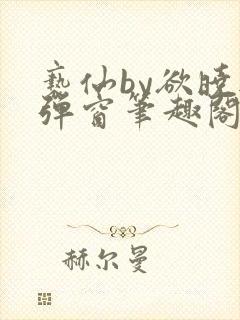 亵仙by欲晓
弹窗笔趣阁
赫尔曼